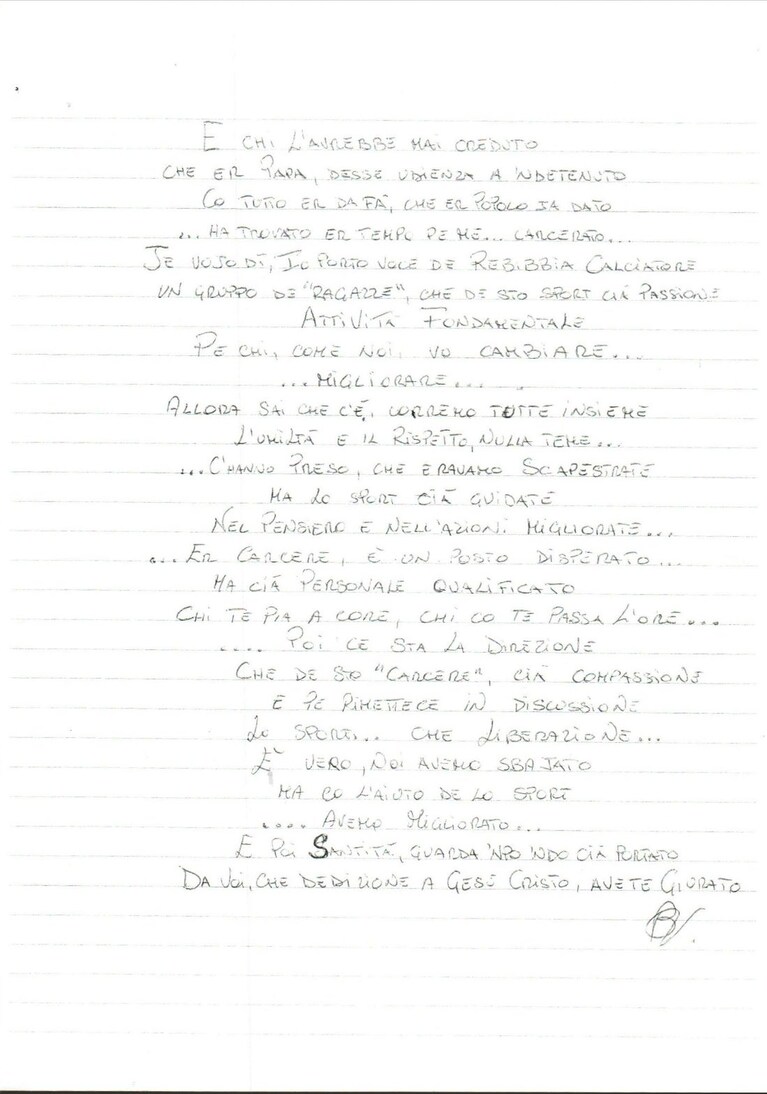 E CHI L'AVREBBE MAI CREDUTO
CHE ER PAPA, DESSE UDIENZA A 'NDETENUTO
CO TUTTO ER DA FÀ, CHE ER POPOLO JA DATO
... HA TROVATO ER TEMPO PE ME... CARCERATO...
JE VOJO DÌ, IO PORTO VOCE DE REBIBBIA CALCIATORE
UN GRUPPO DE "RAGAZZE", CHE DE STO SPORT CIÀ PASSIONE
ATTIVITÀ FONDAMENTALE
PE CHI, COME NOI, VO CAMBIARE...
...MIGLIORARE...
ALLORA SAI CHE C'È, CORREMO TUTTE INSIEME
L'UMILTÀ E IL RISPETTO, NULLA TEME...
...C'HANNO PRESO, CHE ERAVAMO SCAPESTRATE
MA LO SPORT CIÀ GUIDATE
NEL PENSIERO E NELL'AZIONI MIGLIORATE...
...ER CARCERE, È UN POSTO DISPERATO...
MA CIÀ PERSONALE QUALIFICATO
CHI TE PIA A CORE, CHI CO TE PASSA L'ORE...
.... POI CE STA LA DIREZIONE
CHE DE STO "CARCERE", CIÀ COMPASSIONE
E PE RIMETTECE IN DISCUSSIONE
LO SPORT... CHE LIBERAZIONE...
È VERO, NOI AVEMO SBAJATO
MA CO L'AIUTO DE LO SPORT
.... AVEMO MIGLIORATO...
E POI SANTITÀ, GUARDA 'NPO 'NDO CIÀ PORTATO
DA VOI, CHE DEDIZIONE A GESÙ CRISTO, AVETE GIURATO